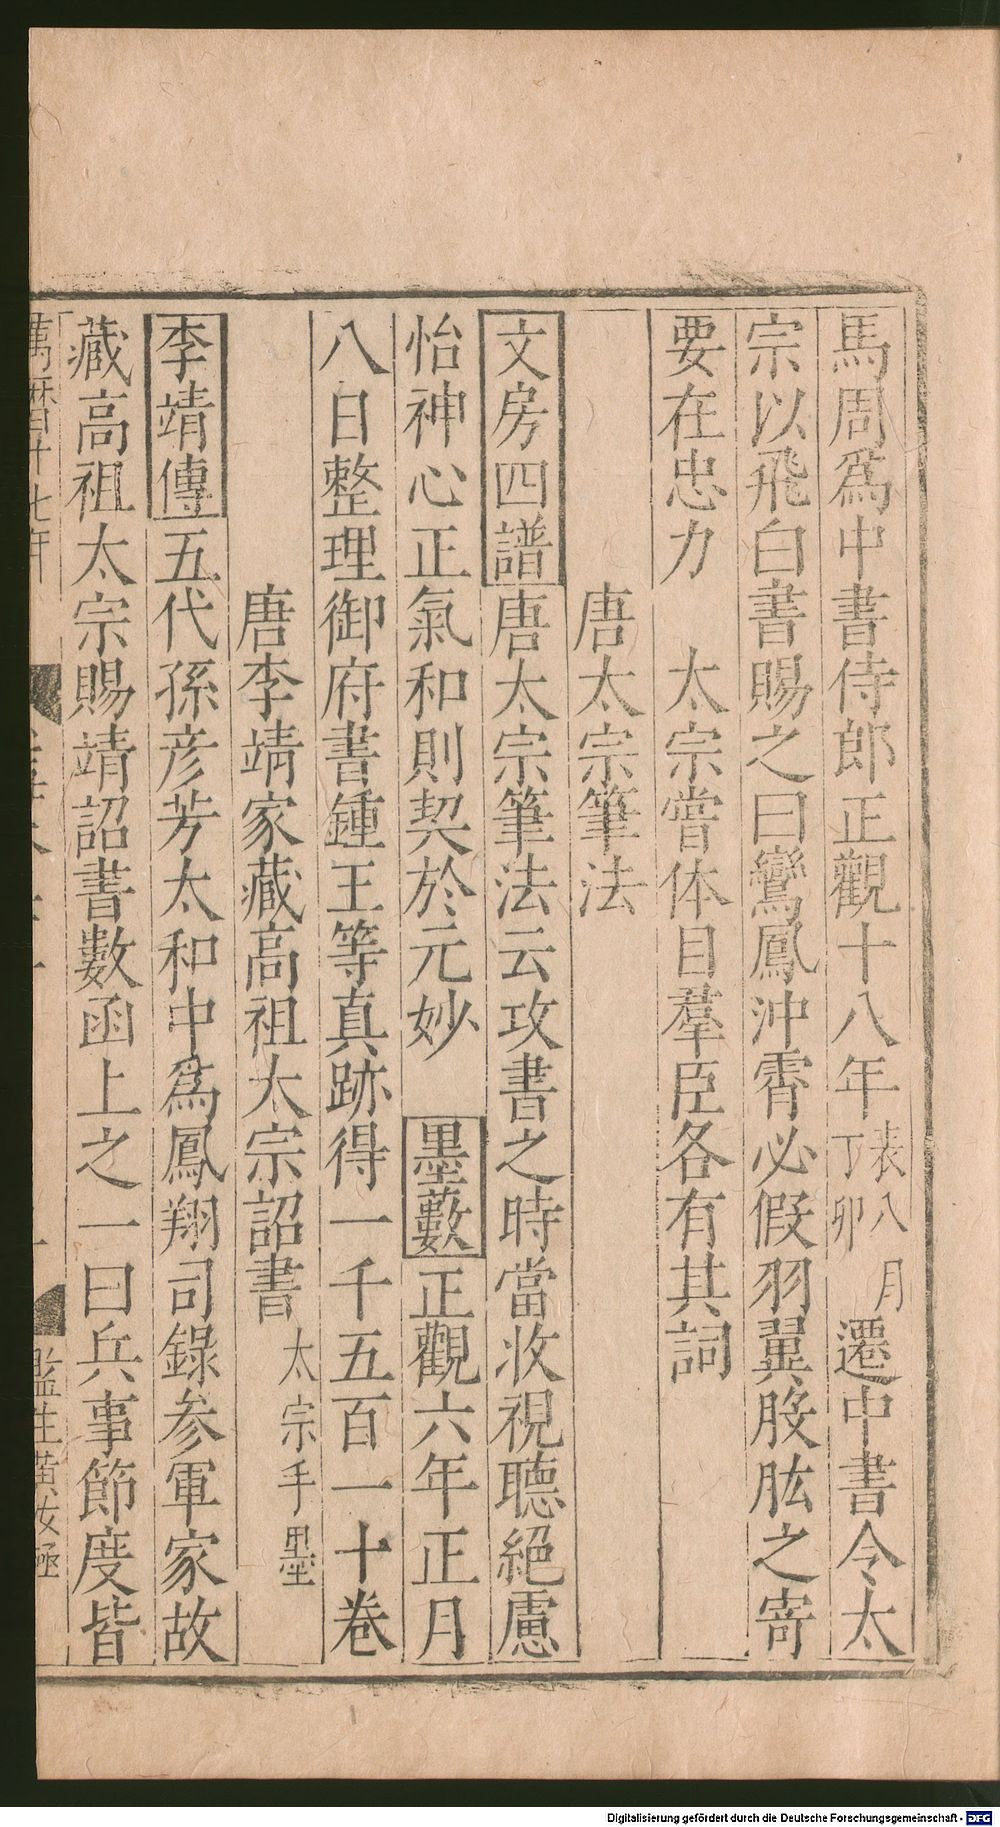 馬周爲中書侍郎正觀十八年表八月丁卯遷中書令太
宗以飛白書賜之曰鸞鳳沖霄必假羽翼股肱之寄
要在忠力　太宗嘗体目羣臣各有其詞
唐太宗筆法
文房四譜唐太宗筆法云攻書之時當收視聽絕慮
怡神心正氣和則契於元妙　墨藪正觀六年正月
八日整理御府書鍾王等真跡得一千五百一十卷
唐李靖家藏高祖太宗詔書太宗手墨
李靖傳五代孫彦芳太和中爲鳳翔司錄參軍家故
藏高祖太宗賜靖詔書數函上之一曰兵事節度皆
萬曆十七年
監生黃汝極
Digitalisierung gefördert durch die Deutsche Forschungsgemeinschaft - DFG